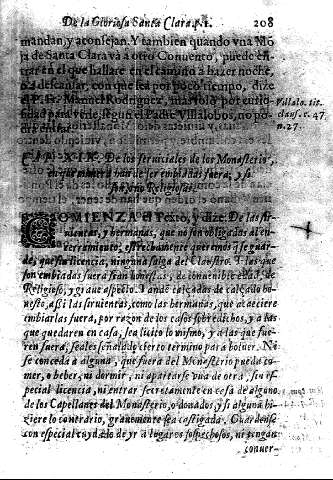 De la Gloriosa Santa Clara. p. 1. 208
mandan, y aconsejan. Y tambien quando vna Mō
ja de Santa Clara va a otro Conuento, puede en-
trar en el que hallare en el camino a hazer noche,
o a descansar, con que sea por poco tiempo, dize
el P. Fr. Manuel Rodriguez, mas solo por curio-
sidad para verle, segun el Padre Villalobos, no po-
drà entrar.
Villalo. tit.
claus. c. 47.
n. 27.
CAP. XIX. De los seruiciales de los Monasterios,
en que manera han de ser embiadas fuera; y si
son, o no Religiosas.
COMIENZA el Texto, y dize: De las sir-
uientas, y hermanas, que no son obligadas al en-
cerramiento, estrechamente queremos q̃ se guar-
de, que sin licencia, ninguna salga del Claustro. Y las que
son embiadas fuera sean honestas, y de conuenible edad, de
Religioso, y graue aspecto. Y ande calçadas de calçado ho-
nesto, assi las siruientas, como las hermanas, que acaeciere
embiarlas fuera, por razon de los casos sobredichos, y a las
que quedaren en casa, sea licito lo mismo, y a las que fue-
ren fuera, seales señalado cierto termino para boluer. Ni
se conceda a alguna, que fuera del Monesterio pueda co-
mer, o beber, ni dormir, ni apartarse vna de otra, sin es-
pecial licencia, ni entrar secretamente en casa de alguno
de los Capellanes del Monasterio, o donados, y si alguna hi-
ziere lo contrario, grauemente sea castigada. Guardense
con especial cuydado de yr a lugares sospechosos, ni tengan
conuer-